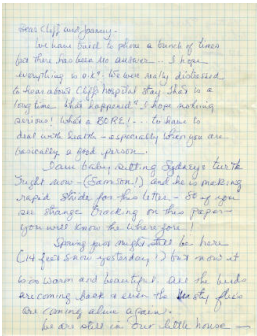 Dear Cliff and
We have tried to phone a bunch of times
yet there has been no answer... I hope
everything is o.k. We were really distressed
to hear about Cliff's hospital stay. That is a
long time. What happened? I hope nothing
serious! What a BORE! - to have to
deal with health - especially when you are
basically a good person.
I am baby sitting Sydney's turtle
right now - (Samson!) and he is making
rapid strides for this letter - So if you
see strange tracking on this paper -
you will know the wherefore!!
Spring just might still be here
(14 feet snow yesterday!) but now it
is so warm and beautiful. All the birds
are coming back & even the flies
are coming alive again.
We are still in our little house -